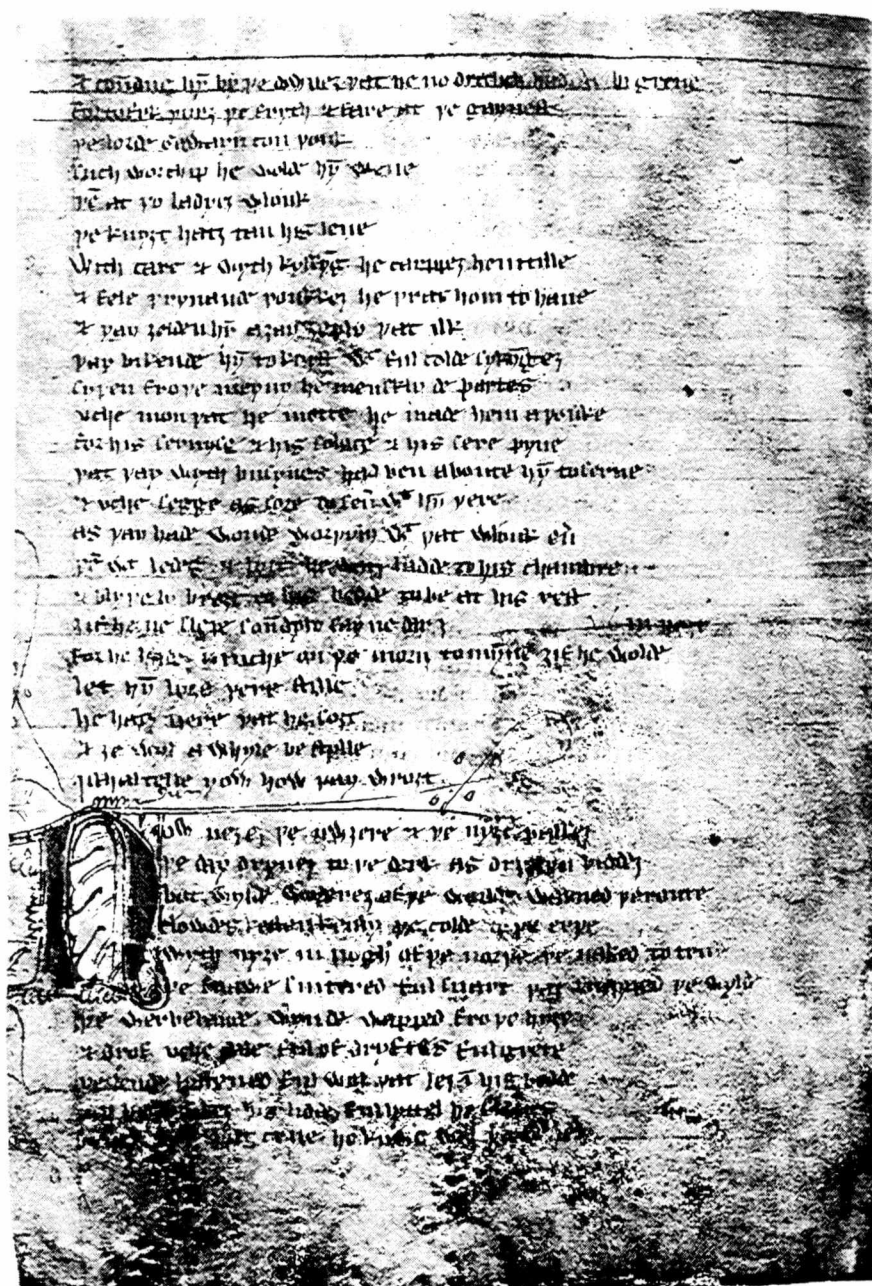 & coundue hȳ by þe downez þat he no drechch had bi greue
for to ferk þurȝ þe fryth & fare at þe gaynest
þe lorde Gawayn con þonk
such worchip he wolde hȳ weue
þē at þo ladyez wlonk
þe knyȝt hatz tan his leue
With care & wyth kyssȳg he carppez hem tille
& fele þryuande þonkkez he þrat hom to haue
& þay ȝelden hȳ aȝay ȝeply þat ilk
þay bikende hȳ to kryst wͭ ful colde sykȳgez
syþen fro þe meyny he menskly de partes
vche mon þat he mette he made hem a þonke
for his seruyse & his solace & his sere pyne
þat þay wyth busynes had ben aboute hȳ to serue
& vche segge as sore to seū wͭ hȳ þere
as þay hade wonde worþyly wͭ þat wlonk eū
þē wͭ ledes & lyȝt he watz ladde to his chambre
& blyþely broȝt to his bedde to be at his rest
ȝif he ne slepe soūdyly say ne dar I in þoȝt
for he hade muche on þe morn to mȳne ȝif he wolde
let hȳ lyȝe þere stille
he hatz nere þat he soȝt
& ȝe wyl a whyle be stylle
I schal telle yow how þay wroȝt
Now neȝez þe nw ȝere & þe nyȝt passez
þe day dryuez to þe derk as dryȝtyn biddez
bot wylde wederez of þe worlde wakned þeroute
clowdes kesten kenly þe colde to þe erþe
wyth nyȝe in noghe of þe norþe þe naked to tene
þe snawe snitered ful snart þat snayped þe wylde
þe werbelande wynde wapped fro þe hyȝe
& drof vche dale ful of dryftes ful grete
þe leude lystened ful wel þat leȝ ī his bedde
þaȝ he lowkez his liddez ful lyttel he slepes
þat crue he knwe wel